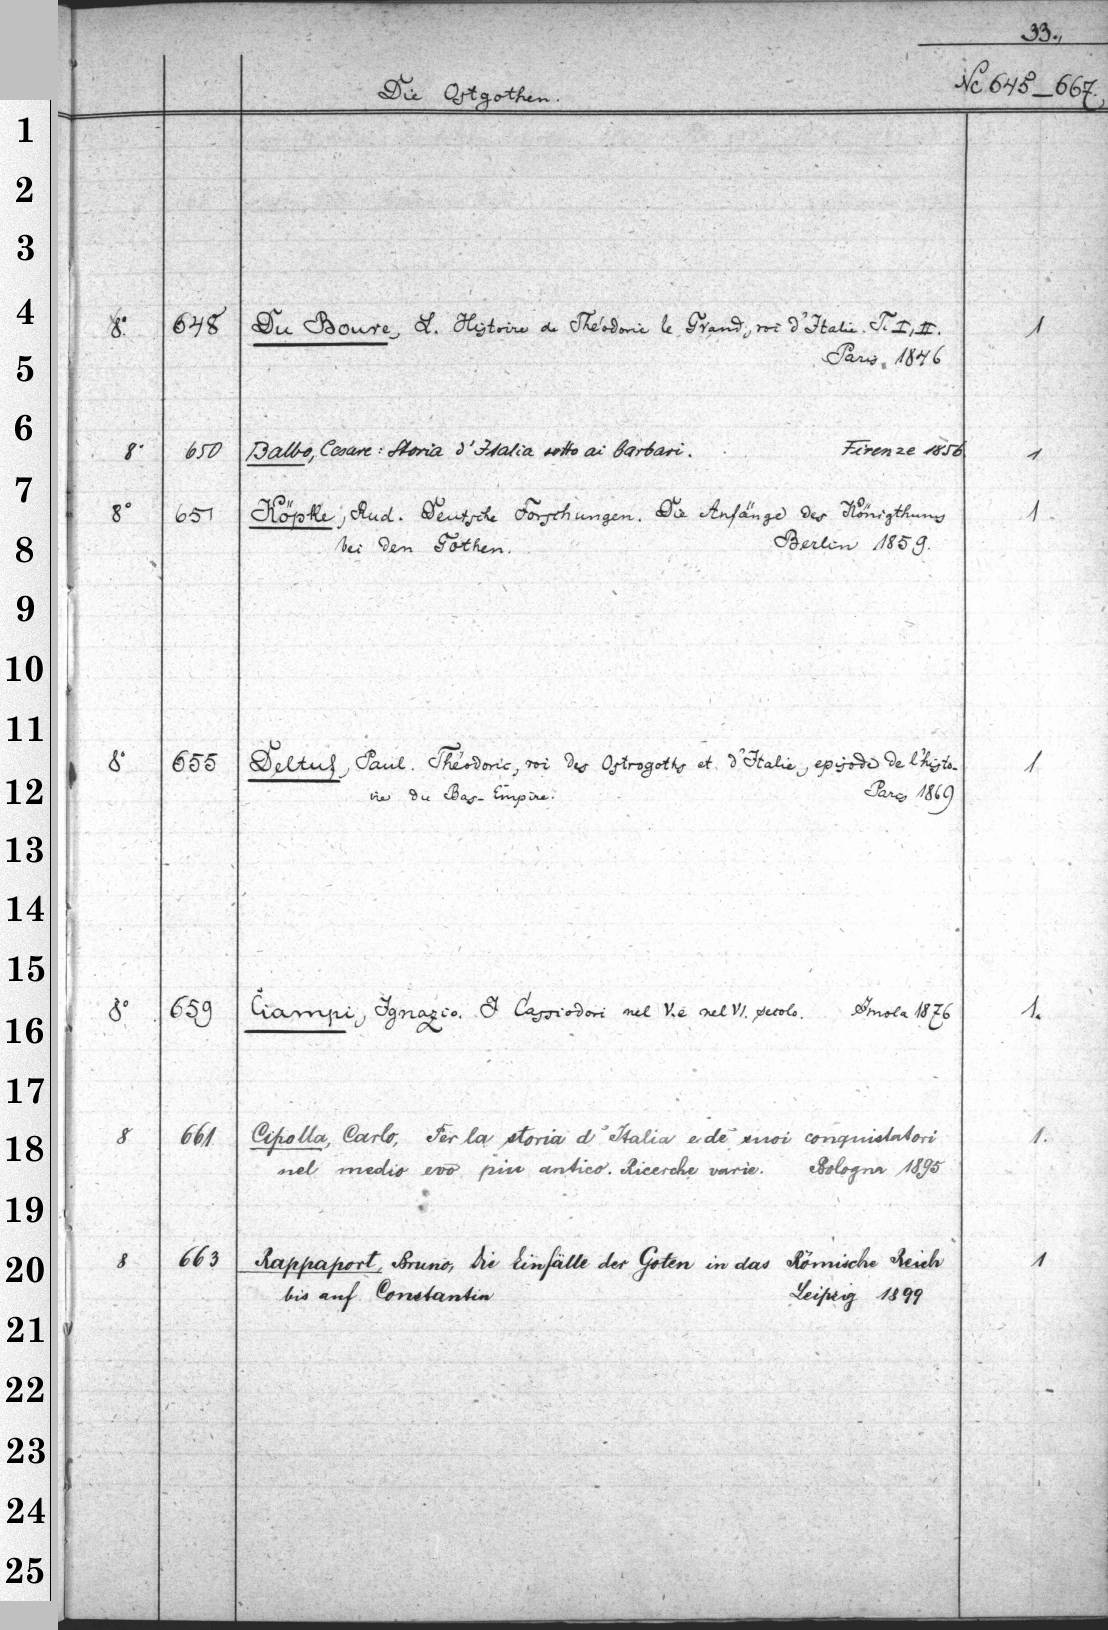 33.
Die Ostgothen.
Nc 645–667.
1
2
3
4
8° 648 Du Boure, L. Histoire de Théodoric le Grand, roi d'Italie. T. I, II. 1
5
Paris. 1846
6
8° 650 Balbo, Cesare: Storia d'Italia sotto ai barbari. Firenze 1856 1
7
8° 651 Köpke, Rud. Deutsche Forschungen. Die Anfänge des Königthums 1
8
bei den Gothen. Berlin 1859.
9
10
11
8° 655 Deltuf, Paul. Théodoric, roi des Ostrogoths et d'Italie, episode de l'histo- 1
12
rie du Bas-Empire. Paris 1869
13
14
15
8° 659 Ciampi, Ignazio. I Cassiodori nel V. e nel VI. secolo. Imola 1876 1.
16
17
8 661 Cipolla, Carlo, Per la storia d'Italia e de' suoi conquistatori 1.
18
nel medio evo piu antico. Ricerche varie. Bologna 1895
19
8 663 Rappaport, Bruno, Die Einfälle der Goten in das Römische Reich 1
20
bis auf Constantin Leipzig 1899
21
22
23
24
25